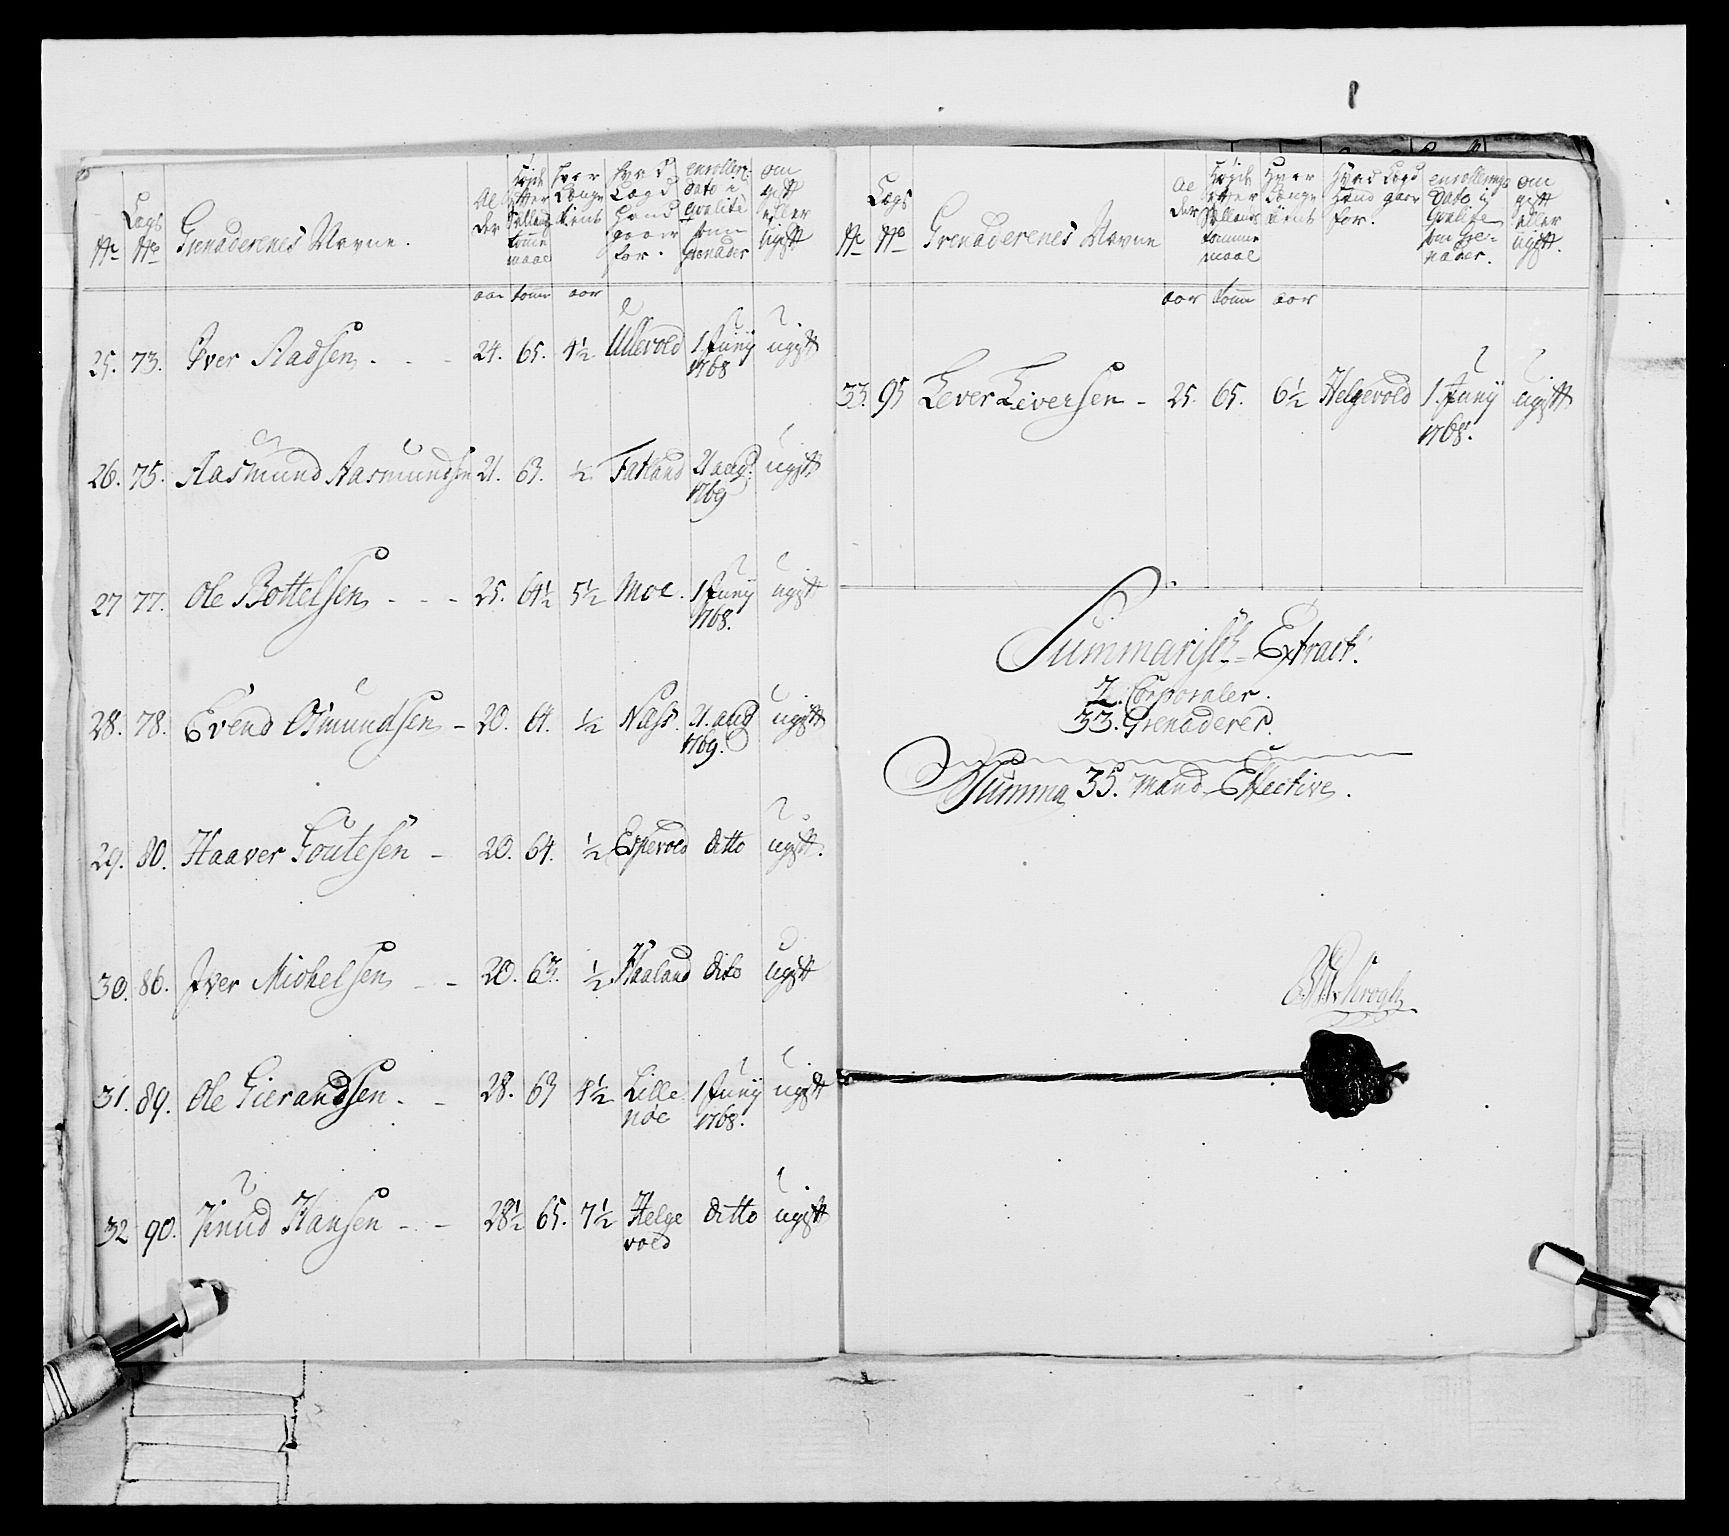 No Lægs No Grenaderenes Navne. Alder Høyde efter Sellands tomme maal hvor Længe tient hvad Lægd hand giør for. enrollerings Dato i qvalite som Grenader om gift eller ugift
aar tomr aar
25. 73. Iver Aadsen - - - 24. 65. 4½ Ullevold 1 Juny 1768 ugift
26. 75. Aasmund Aasmundsen 21. 63. ½ Fatland 21 aug. 1769 ugift
27 77. Ole Bottelsen - - - 25. 64½ 5½ Moe. 1 Juny 1768. ugift
28. 78. Evend Osmundsen - 20. 64. ½ Næss. 21. aug 1769. ugift
29. 80. Haaver Goutesen - 20. 64. ½ Espevold ditto ugift.
30. 86. Iver Michelsen - - 20. 63. ½ Haaland dito ugift
31. 89. Ole Gierandsen - - 28. 63 4½ Lille noe 1 Juny 1768. ugift
32 90. Knud Hansen - - 28½ 65. 7½ Helge vold ditto ugift
No Lægs No Grenaderenes Navne Alder Høyde efter Sellands tomme maal Hvor Længe tient Hvad Lægd Hand giør for. enrollerings Dato i Qvalite som Grenader. om gift eller ugift.
aar tomr aar
33. 95 Lever Leversen - 25. 65. 6½ Helgevold 1. Juny 1768. ugift
Summarisk Extract.
2. Corporaler.
33. Grenaderer.
Summa 35. mand Effective.
Krogh